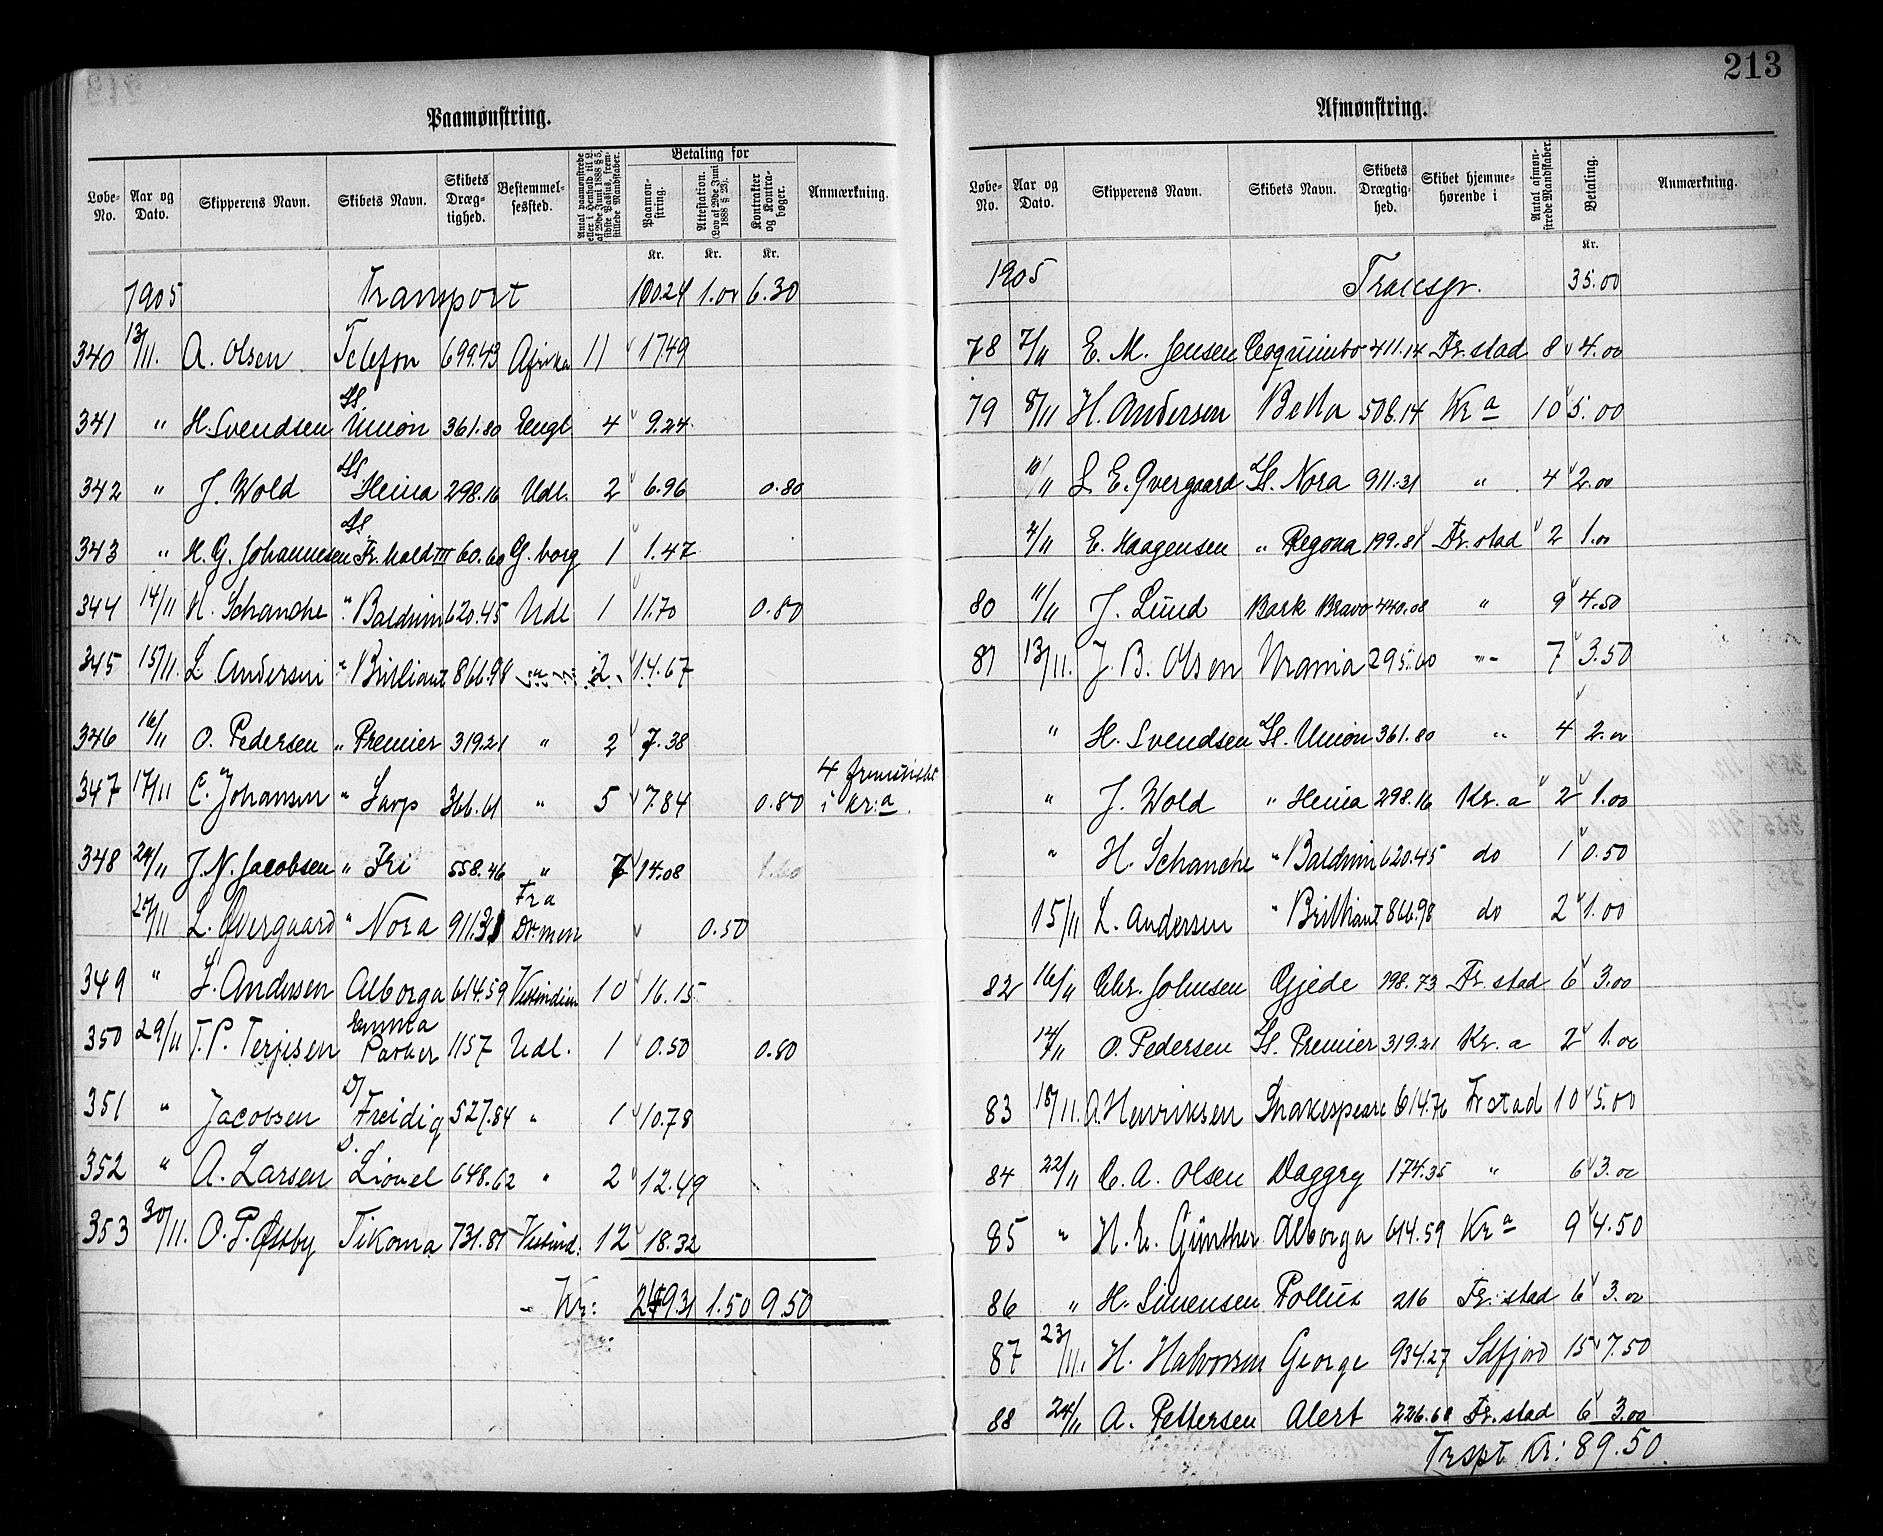 213
Paamønstring.
Løbe-No. Aar og Dato. Skipperens Navn. Skibets Navn. Skibets Dræg-tighed. Bestemmel-sessted. Betaling for Paamøn-string. Attestation. Kontrakter og Kontra-bøger. Anmærkning.
Kr. Kr. Kr.
1905 Transport 100.24 1.00 6.30
340 13/11. A. Olsen Telefon 699.43 Afrika 11 17.49
341 " H. Svendsen SS Union 361.80 Engl 4 9.24
342 " J. Wold SS Heina 298.16 Udl. 2 6.96 0.80
343 " H. G. Johannesen SS Fr.hald III 60.60 G.borg 1 1.47
344 14/11 H. Schanche " Baldwin 620.45 Udl 1 11.70 0.80
345 15/11 L. Andersen " Brilliant 866.98 2 14.67
346 16/11 O. Pedersen " Premier 319.21 " 2 7.38
347 17/11 C. Johansen " Sarp 366.61 " 5 7.84 0.80 4 i Kr:a.
348 24/11 J. N. Jacobsen " Fri 558.46 " 7 14.08 1.60
27/11 L. Qvergaard " Nora 911.31 Fra Dr.men 0.50
349 " L. Andersen Alborga 614.59 Vestindien 10 16.15
350 29/11 T. P. Terjesen Emma Parker 1157 Udl. 1 0.50 0.80
351 " Jacobsen D/ Freidig 527.84 " 1 10.78
352 " A. Larsen D. Lionel 648.62 " 2 12.49
353 30/11. O. P. Østby Tikoma 731.81 Vestind. 12 18.32
Kr: 249.31 1.50 9.50
Afmønstring.
Løbe-No. Aar og Dato. Skipperens Navn. Skibets Navn. Skibets Drægtig-hed. Skibet hjemme-hørende i Antal afmøn-strede Mandskaber. Betaling. Anmærkning.
Kr.
1905 Transp. 35.00
78 7/11 E. M. Jensen Coquimbo 411.14 Fr.stad 8 4.00
79 8/11 H. Andersen Bella 508.14 Kr a 10 5.00
10/11 L. E. Qvergaard SS. Nora 911.31 " 4 2.00
4/11 E. Haagensen " Regona 199.81 Fr.stad 2 1.00
80 11/11 J. Lund Bark Bravo 440.08 " 9 4.50
81 13/11. J. B. Olsen Urania 295.60 " 7 3.50
" H. Svendsen SS. Union 361.80 " 4 2.00
" J. Wold " Heina 298.16 Kr. a 2 1.00
" H. Schanche " Baldwin 620.45 do 1 0.50
15/11 L. Andersen " Brilliant 866.98 do 2 1.00
82 16/11 Chr. Johnsen Gjede 198.73 Fr.stad 6 3.00
17/11 O. Pedersen SS. Premier 319.21 Kr. a 2 1.00
83 18/11. A. Henriksen Shakespeare 614.76 Fr stad 10 5.00
84 22/11 C. A. Olsen Daggry 174.35 " 6 3.00
85 " H. E. Günther Alborga 614.59 Kr a 9 4.50
86 " H. Simensen Pollux 216 Fr.stad 6 3.00
87 23/11. H. Halvorsen George 934.27 Sdfjord 15 7.50
88 24/11 A. Pettersen Alert 226.68 Fr.stad 6 3.00
Trspt Kr: 89.50.